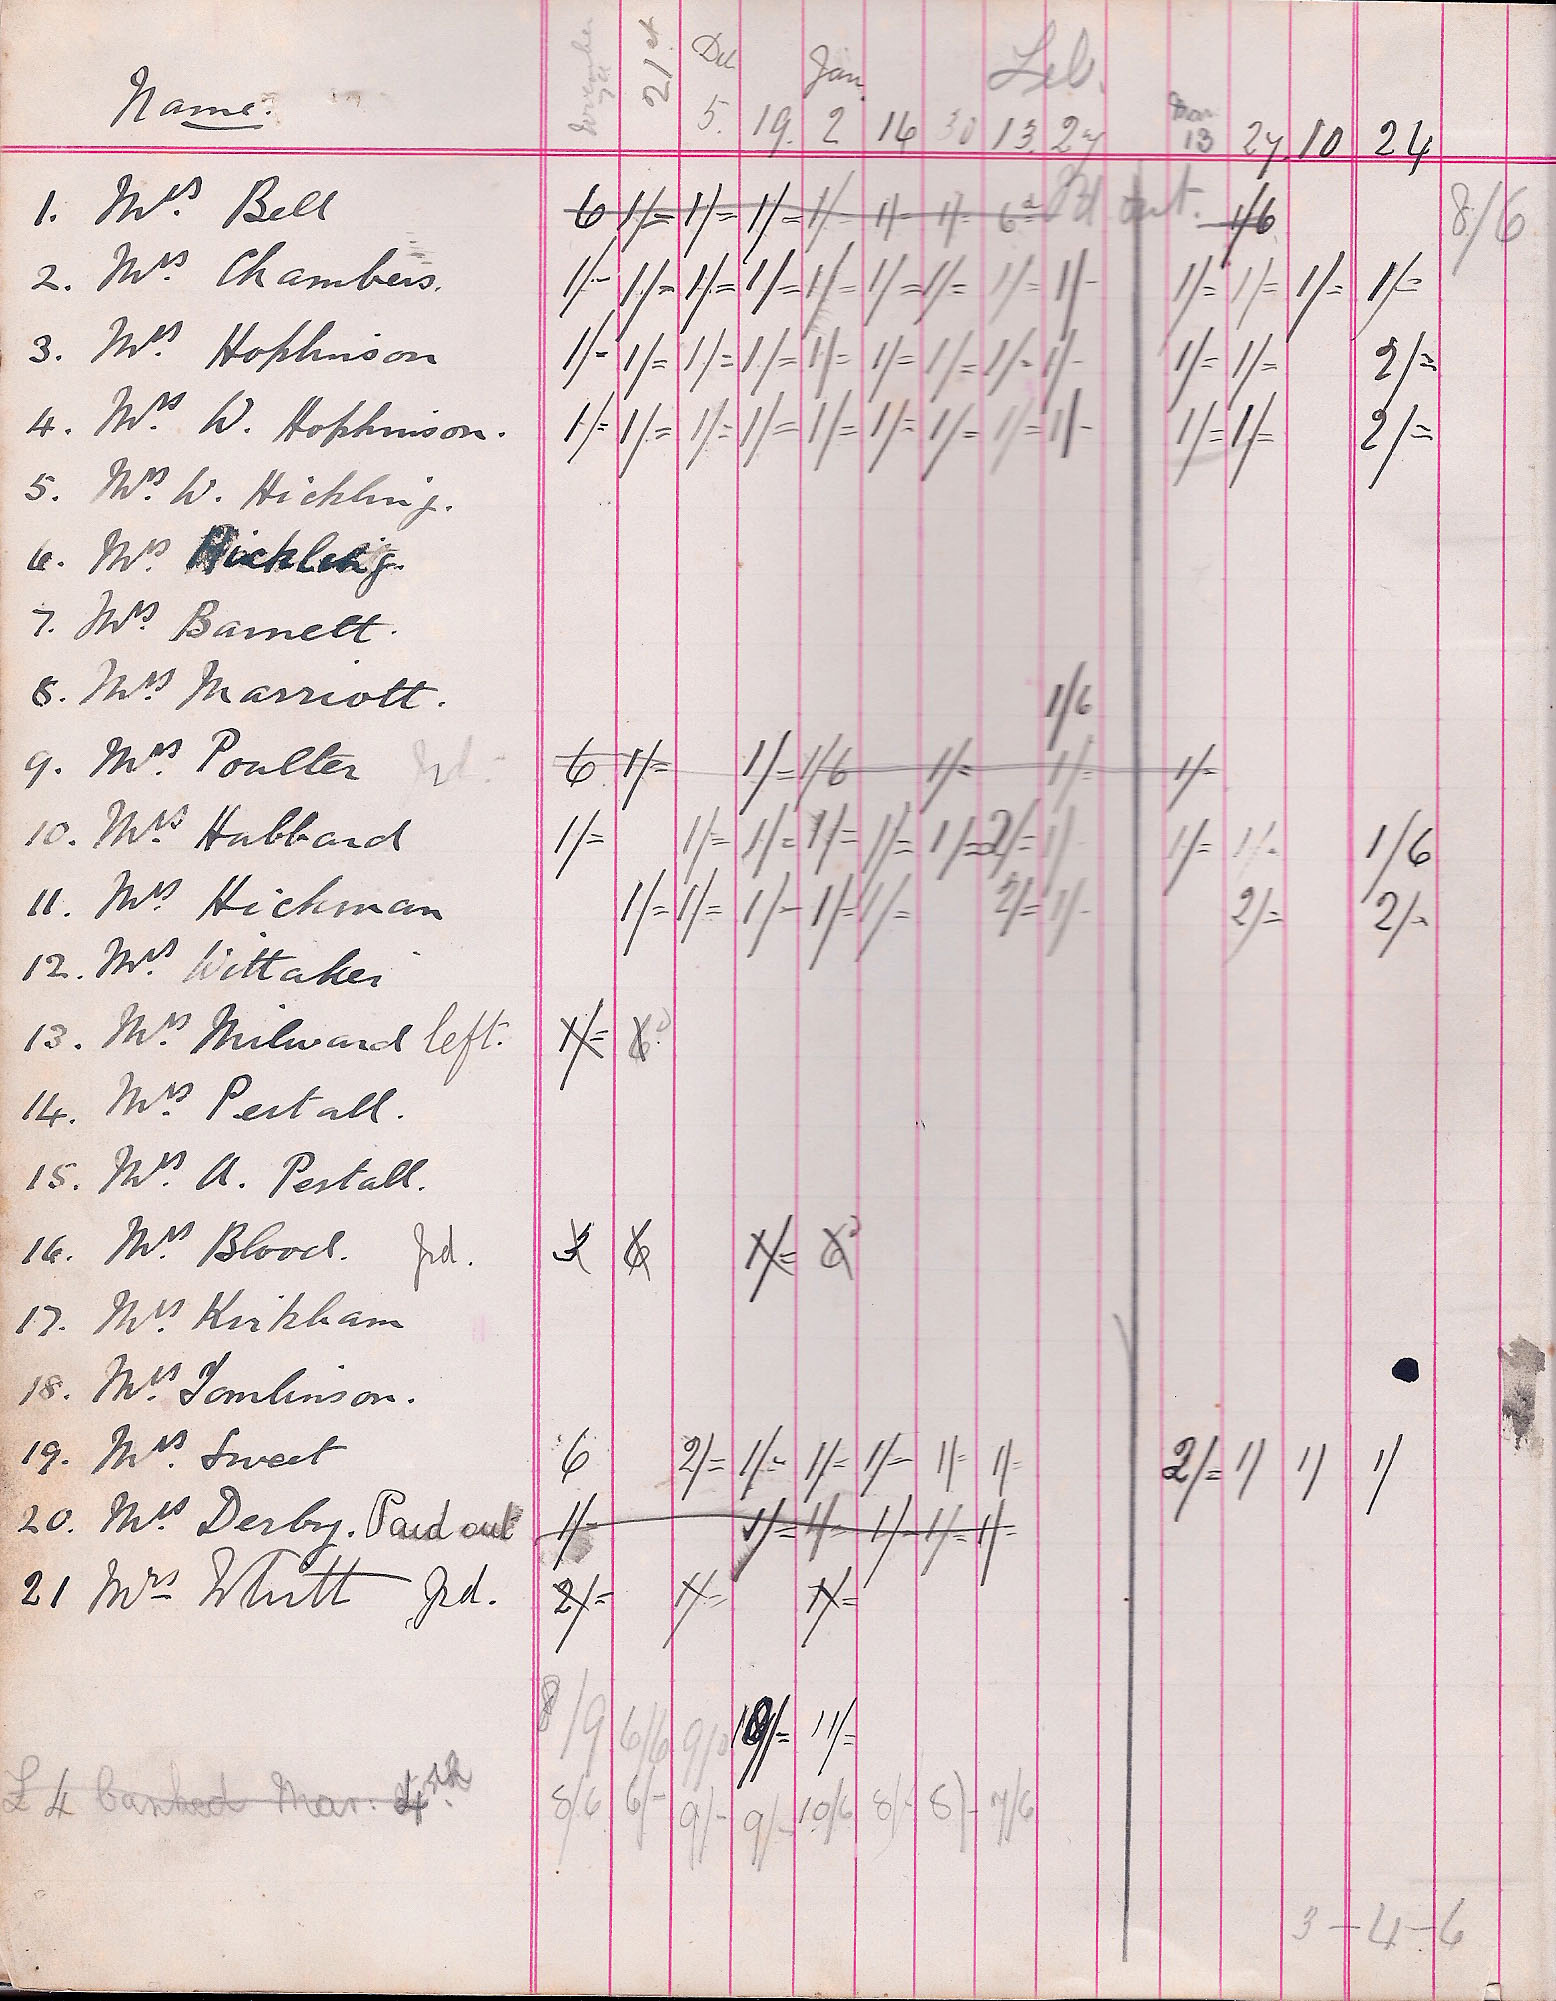 November 7th 21st Dec Jan. Feb.
Name. 5. 19. 2 14 30 13. 27 Mar 13 27. 10 24
1. Mrs. Bell 6 1/= 1/= 1/= 1/- 1/- 1/- 6d= Pd out. 1/6 8/6
2. Mrs Chambers. 1/- 1/= 1/= 1/= 1/- 1/= 1/= 1/- 1/- 1/= 1/= 1/= 1/=
3. Mrs Hopkinson 1/- 1/= 1/= 1/= 1/= 1/= 1/= 1/= 1/- 1/= 1/= 2/=
4. Mrs W. Hopkinson. 1/= 1/= 1/= 1/= 1/= 1/= 1/= 1/= 1/- 1/= 1/= 2/=
5. Mrs W. Hickling.
6. Mrs Hickling.
7. Mrs Barnett.
8. Mrs Marriott. 1/6
9. Mrs Poulter pd. 6 1/= 1/= 1/6 1/= 1/= 1/=
10. Mrs Hubbard 1/= 1/= 1/= 1/= 1/= 1/= 2/= 1/- 1/= 1/- 1/6
11. Mrs Hickman 1/= 1/= 1/- 1/= 1/= 2/= 1/- 2/= 2/-
12. Mrs. Wittaker
13. Mrs. Milward left. 1/= 6d
14. Mrs Pestall.
15. Mrs. A. Pestall.
16. Mrs Blood. pd. 3 6 1/= 6d
17. Mrs. Kirkham
18. Mrs. Tomlinson.
19. Mrs. Sweet 6 2/= 1/- 1/- 1/- 1/- 1/- 2/= 1/ 1/ 1/
20. Mrs Derby. Paid out 1/- 1/= 1/- 1/- 1/- 1/-
21 Mrs Whitt pd. 2/= 1/= 1/=
8/9 6/6 9/0 10/= 11/=
£4 banked Mar. 4th 8/6 6/- 9/- 9/- 10/6 8/- 8/- 7/6
3-4-6